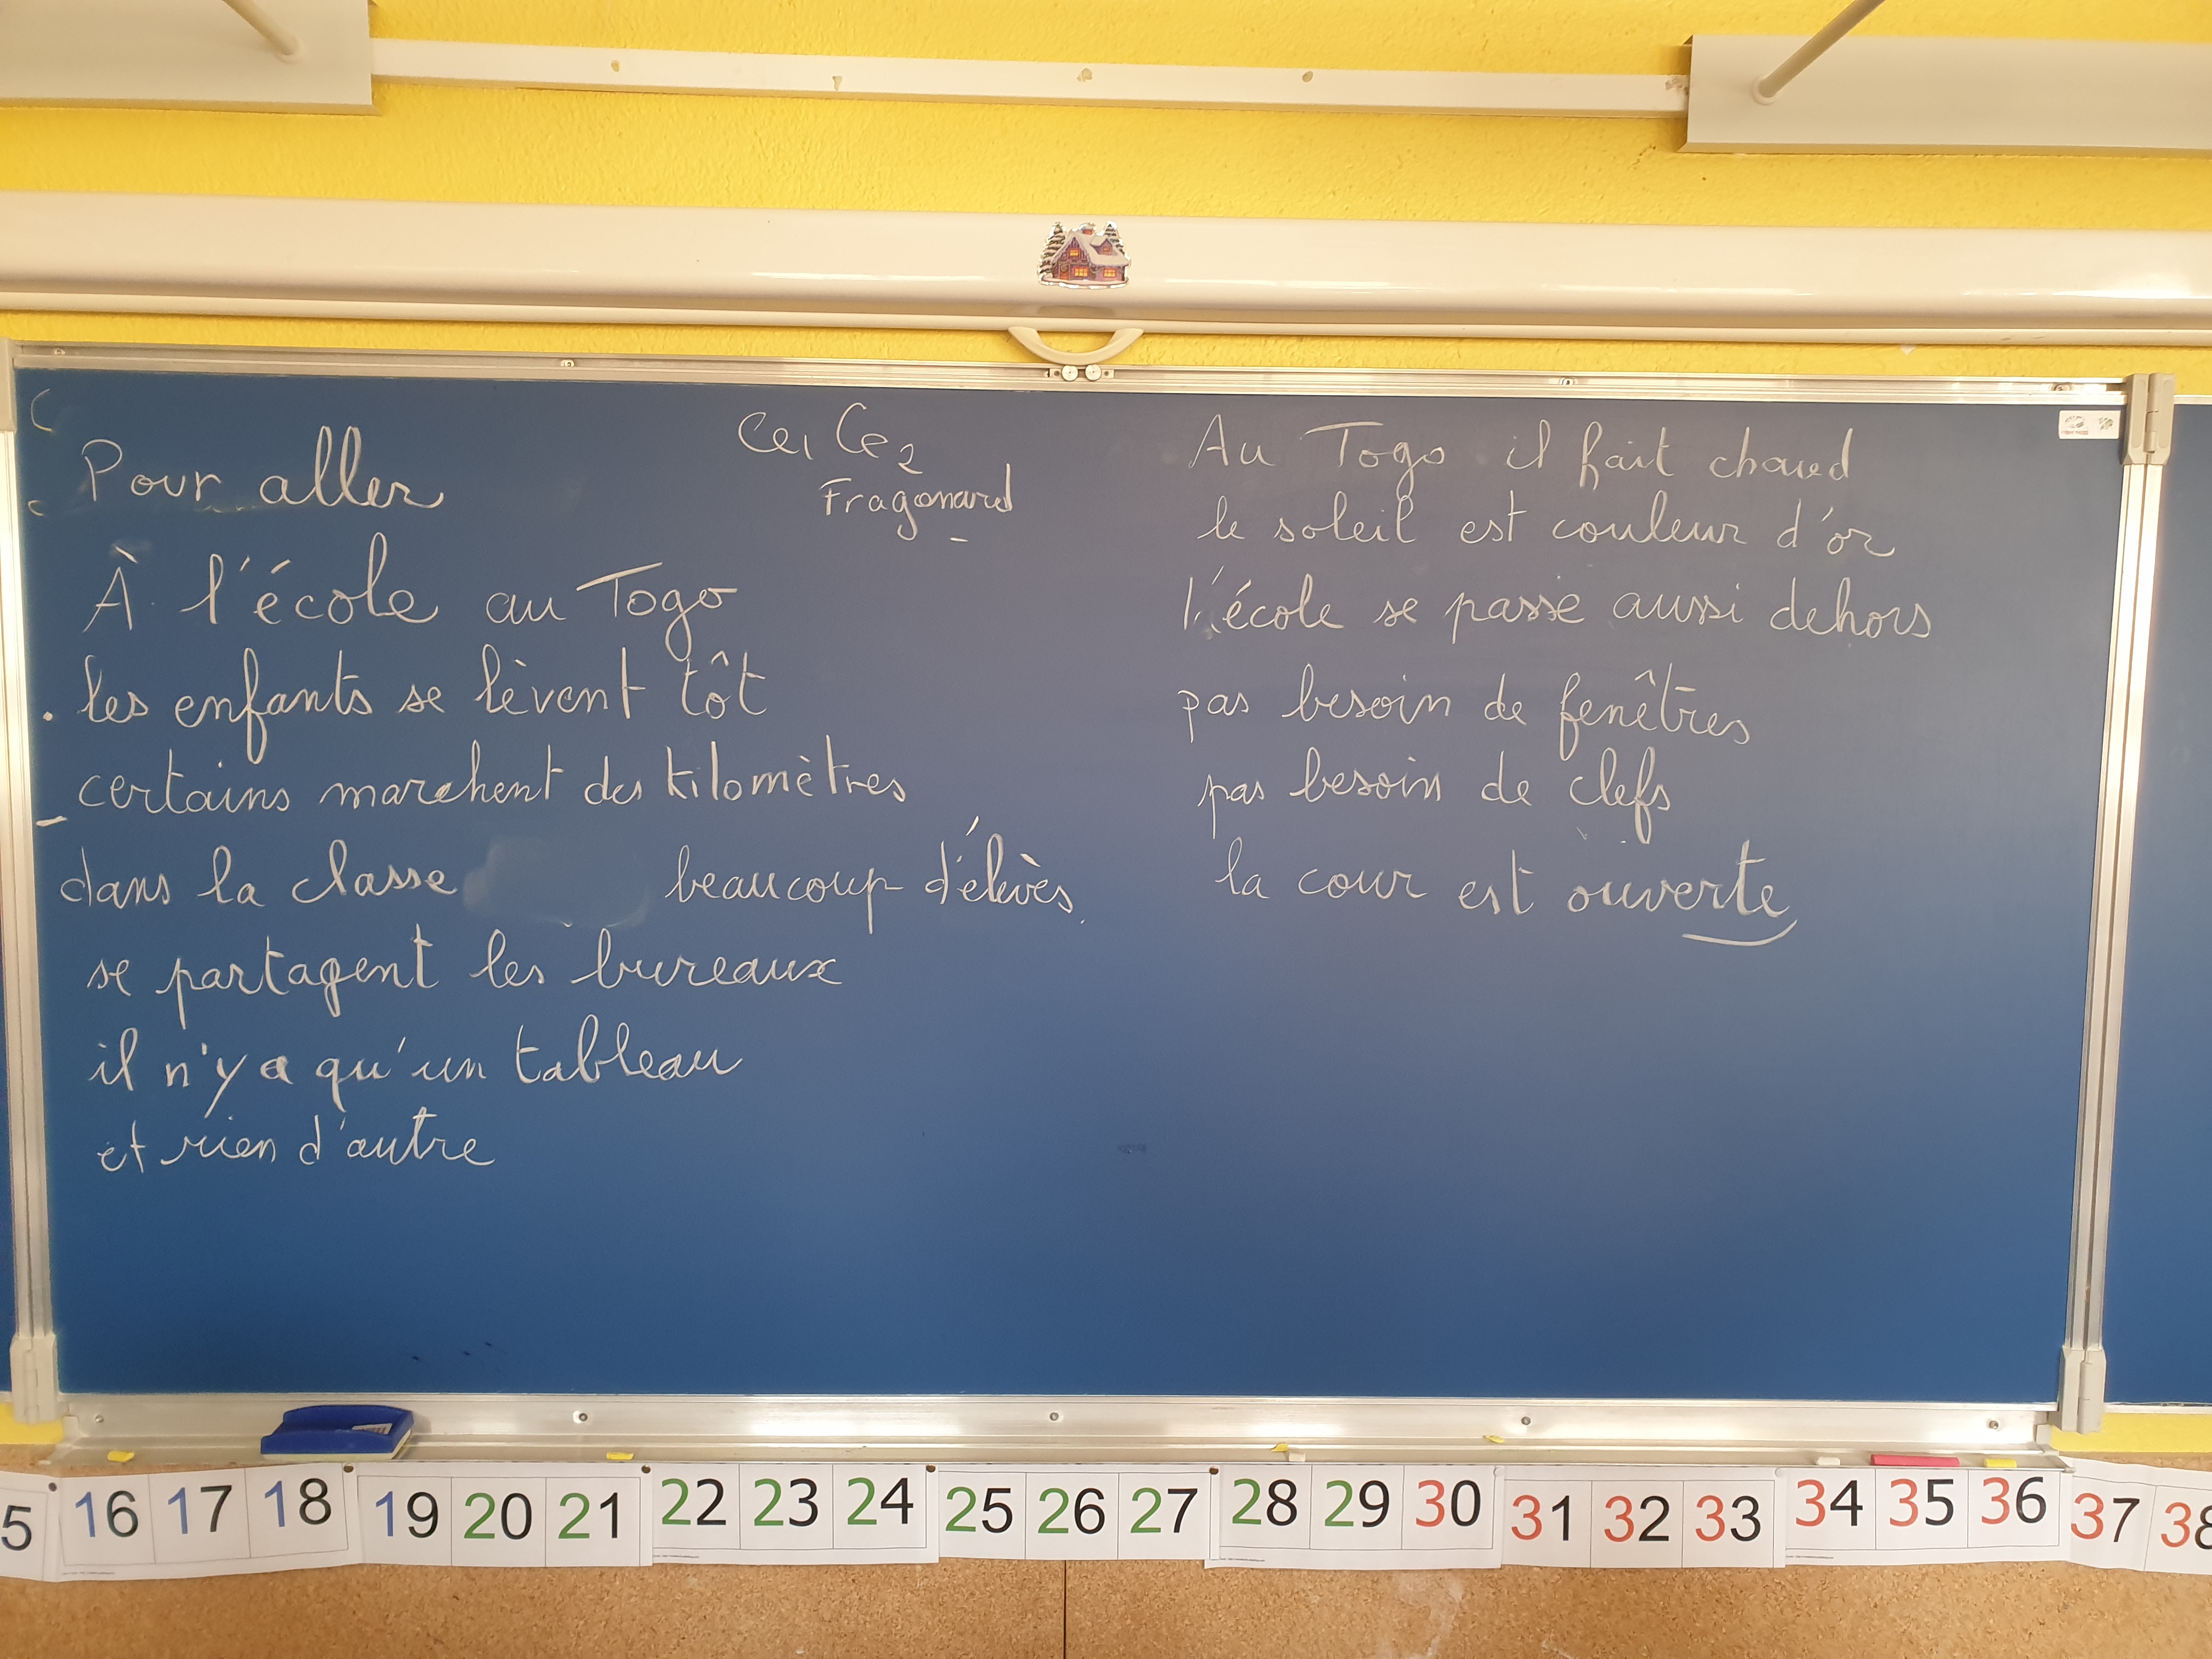 Pour aller
À l'école au Togo
les enfants se lèvent tôt
certains marchent des kilomètres
dans la classe beaucoup d'élèves
se partagent les bureaux
il n'y a qu'un tableau
et rien d'autre
Ce1 Ce2
Fragonard
Au Togo il fait chaud
le soleil est couleur d'or
l'école se passe aussi dehors
pas besoin de fenêtres
pas besoin de clefs
la cour est ouverte
5 16 17 18 19 20 21 22 23 24 25 26 27 28 29 30 31 32 33 34 35 36 37 38